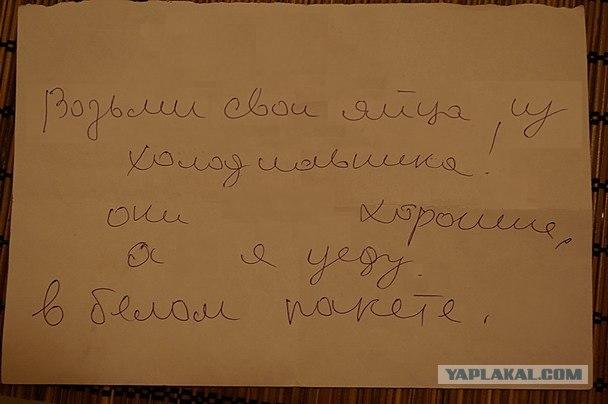 Возьми свои яйца из
холодильника!
они хорошие,
а я уеду.
в белом пакете.
YAPLAKAL.COM